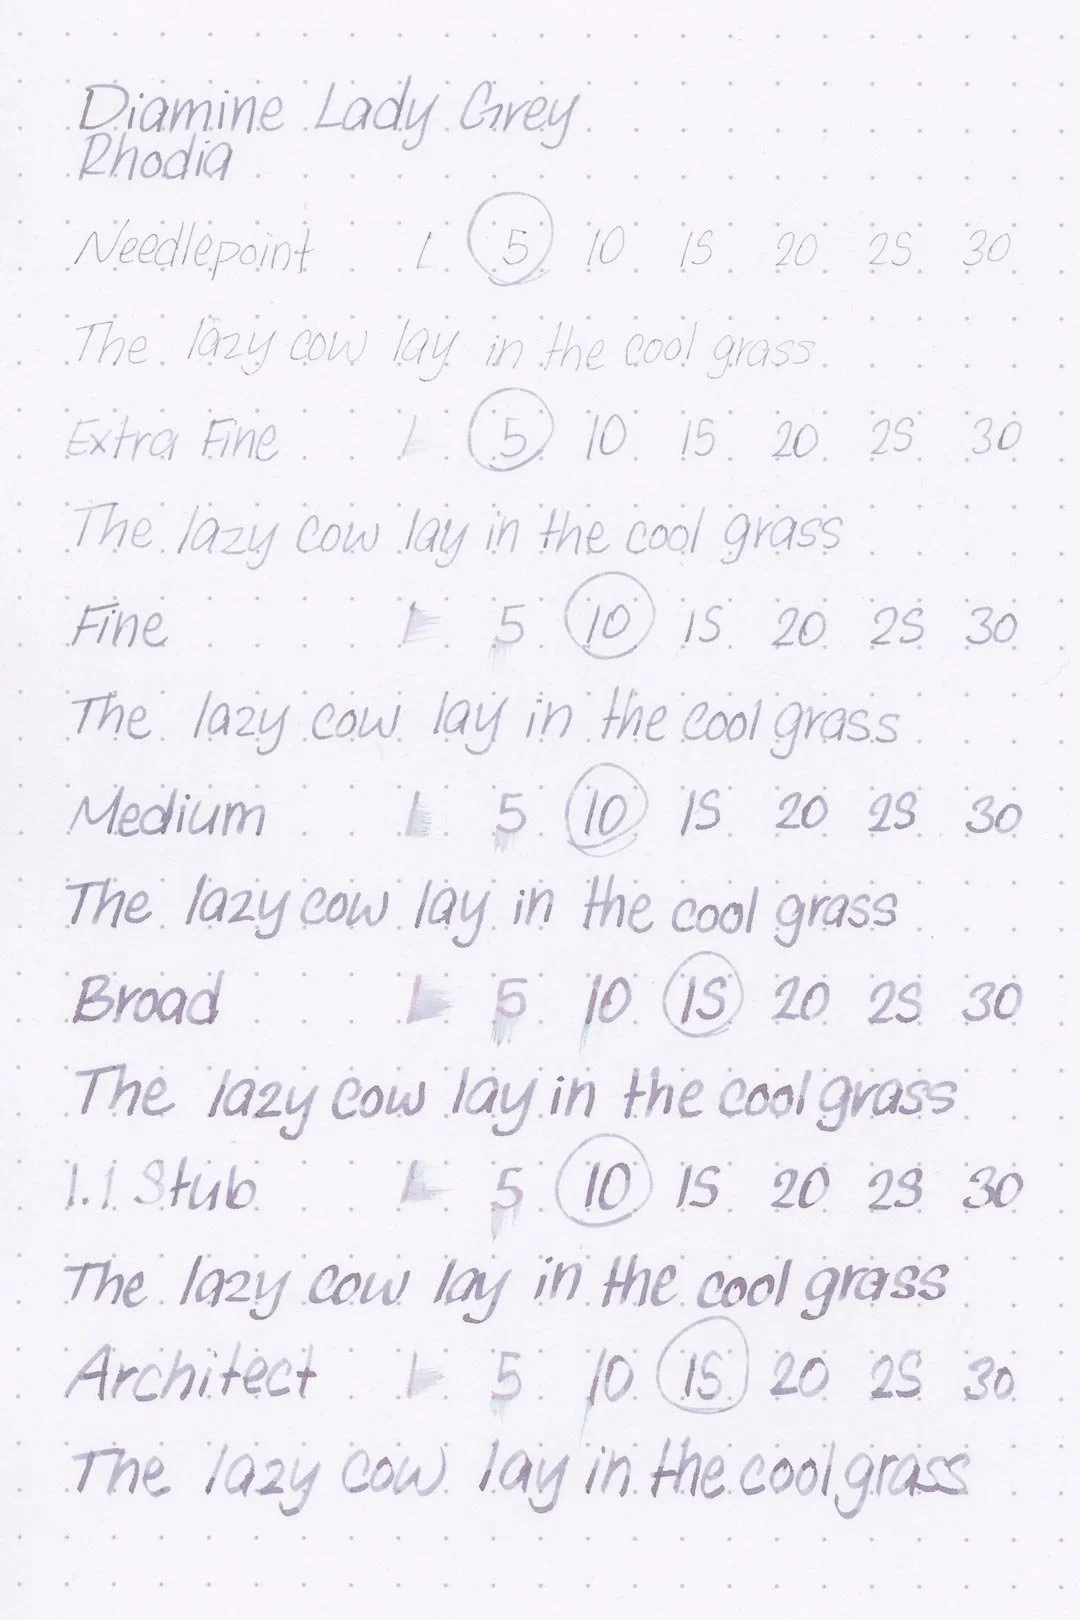 Diamine Lady Grey
Rhodia
Needlepoint 1 5 10 15 20 25 30
The lazy cow lay in the cool grass
Extra Fine 1 5 10 15 20 25 30
The lazy cow lay in the cool grass
Fine 1 5 10 15 20 25 30
The lazy cow lay in the cool grass
Medium 1 5 10 15 20 25 30
The lazy cow lay in the cool grass
Broad 1 5 10 15 20 25 30
The lazy cow lay in the cool grass
1.1 Stub 1 5 10 15 20 25 30
The lazy cow lay in the cool grass
Architect 1 5 10 15 20 25 30
The lazy cow lay in the cool grass